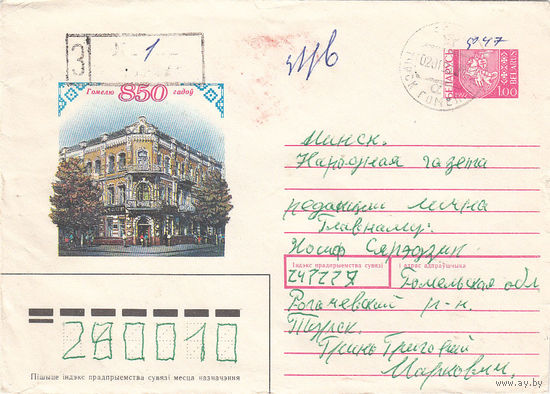 З 1
Гомелю 850 гадоў
947
БЕЛАРУСЬ
BELARUS
1.00
Минск.
Народная газета
редакции лична
Главнаму:
Иосиф Сярэдзич
Індэкс прадпрыемства сувязі і адрас адпраўшчыка
Гомельская обл
Рогачевский р-н.
Турск.
Гринь Григорий
Маркович.
280010
Пішыце індэкс прадпрыемства сувязі месца назначэння
www.ay.by